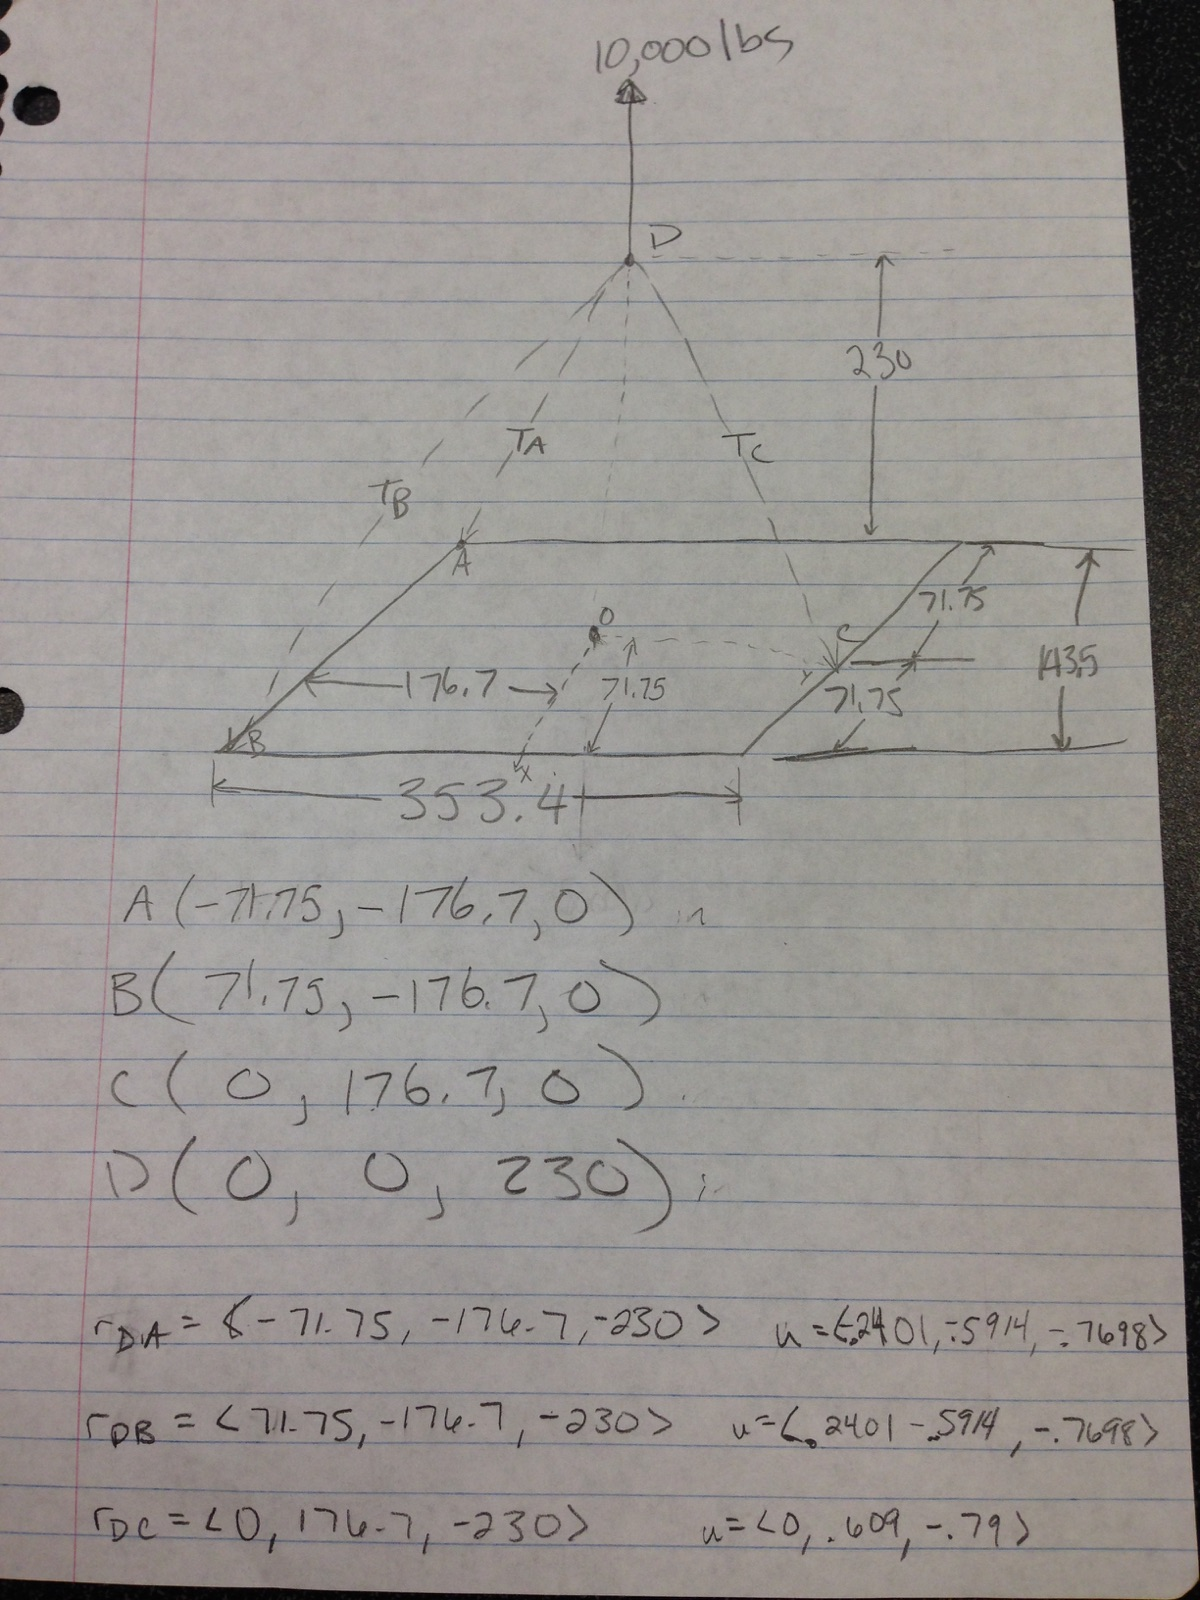 10,000 lbs
D
230
TA
TC
TB
A
71.75
O
C
143.5
176.7
71.75
71.75
B
x
353.4
A (-71.75, -176.7, 0) in
B( 71.75, -176.7, 0)
C ( 0, 176.7, 0)
D( 0, 0, 230)
rDA = <-71.75, -176.7, -230> u = <-.2401, -.5914, -.7698>
rDB = <71.75, -176.7, -230> u = <.2401 -.5914, -.7698>
rDC = <0, 176.7, -230> u = <0, .609, -.79>